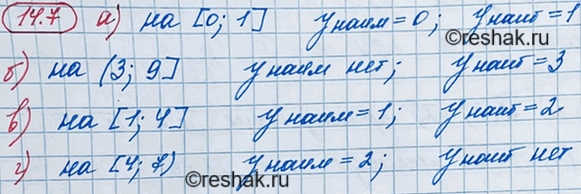 14.7 а) на [0; 1] yнаим = 0; yнаиб = 1
©reshak.ru
б) на (3; 9] yнаим нет; yнаиб = 3
в) на [1; 4] yнаим = 1; yнаиб = 2
г) на [4; 7) yнаим = 2; yнаиб нет
©reshak.ru